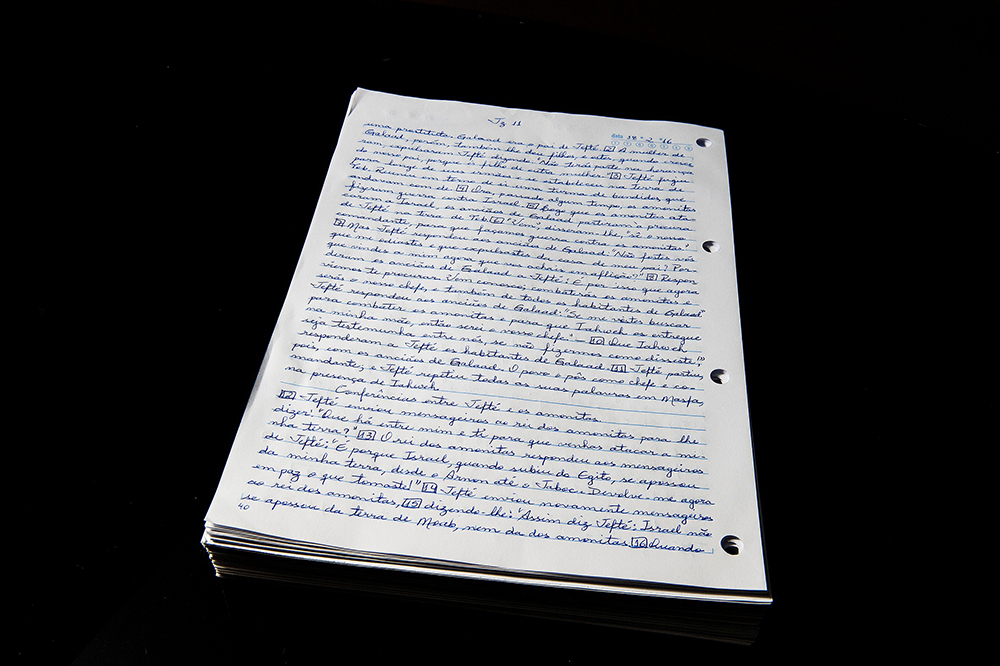 Jz 11
data 18 - 2 - 16
uma prostituta. Galaad era o pai de Jefté [2] A mulher de
Galaad, porém, também lhe deu filhos, e estes, quando cresce-
ram, expulsaram Jefté dizendo: "Não terás parte na herança
do nosso pai, porque és filho de outra mulher." [3] Jefté fugiu
para longe de seus irmãos e se estabeleceu na terra de
Tob. Reuniu em torno de si uma turma de bandidos que
andavam com ele [4] Ora, passado algum tempo, os amonitas
fizeram guerra contra Israel. [5] Logo que os amonitas ata-
caram a Israel, os anciãos de Galaad partiram à procura
de Jefté na terra de Tob. [6] "Vem", disseram-lhe, "sê o nosso
comandante, para que façamos guerra contra os amonitas."
[7] Mas Jefté respondeu aos anciãos de Galaad: "Não fostes vós
que me odiastes e que expulsastes da casa de meu pai? Por-
que vindes a mim agora que vos achais em aflição?" [8] Respon-
deram os anciãos de Galaad a Jefté: "É por isso que agora
viemos te procurar. Vem conosco; combaterás os amonitas e
serás o nosso chefe, e também de todos os habitantes de Galaad"
Jefté respondeu aos anciãos de Galaad: "Se me vistes buscar
para combater os amonitas e para que Iahweh os entregue
na minha mão, então serei o vosso chefe." — [10] "Que Iahweh
seja testemunha entre nós se não fizermos como disseste!"
responderam a Jefté os habitantes de Galaad. [11] Jefté partiu,
pois, com os anciãos de Galaad. O povo o pôs como chefe e co-
mandante; e Jefté repetiu todas as suas palavras em Masfa,
na presença de Iahweh.
Conferências entre Jefté e os amonitas
[12] Jefté enviou mensageiros ao rei dos amonitas para lhe
dizer: "Que há entre mim e ti para que venhas atacar a mi-
nha terra?" [13] O rei dos amonitas respondeu aos mensageiros
de Jefté: "É porque Israel, quando subiu do Egito, se apossou
da minha terra, desde o Arnon até o Jaboc. Devolve-me agora
em paz o que tomaste!" [14] Jefté enviou novamente mensageiros
ao rei dos amonitas, [15] dizendo-lhe: "Assim diz Jefté: Israel não
se apossou da terra de Moab, nem da dos amonitas. [16] Quando
40